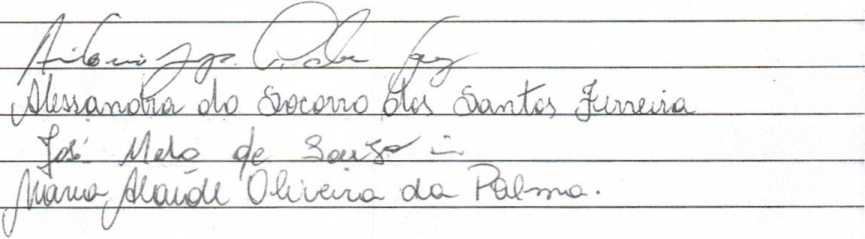 Antonio
Alessandra do Socorro dos Santos Ferreira
José Melo de Souza
Maria Alaíde Oliveira da Palma.